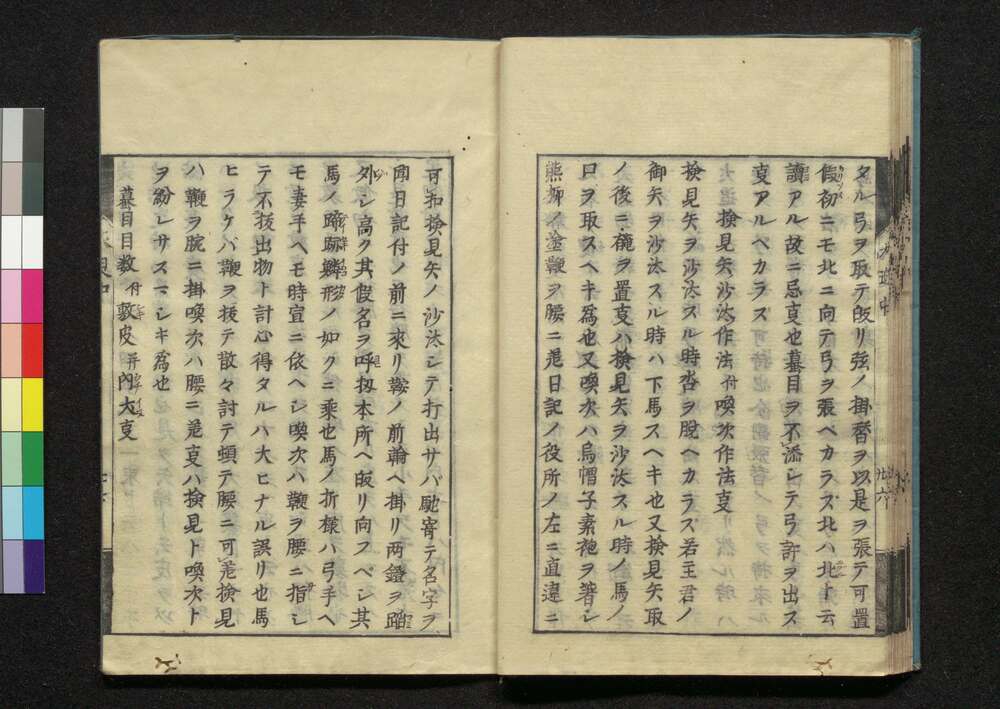 タル弓ヲ取テ皈リ弦ノ掛替ヲ以是ヲ張テ可置
假初ニモ北ニ向テ弓ヲ張ベカラズ北ハ北ト云
讀アル故ニ忌亊也蟇目ヲ不添シテ弓許ヲ出ス
亊アルヘカラス
検見矢沙汰作法付喚次作法亊
検見矢ヲ沙汰スル時沓ヲ脱ヘカラズ若主君ノ
御矢ヲ沙汰スル時ハ下馬スヘキ也又検見矢取
ノ後ニ穐ヲ置亊ハ検見矢ヲ沙汰スル時ノ馬ノ
口ヲ取スヘキ為也又喚次ハ烏帽子素袍ヲ著シ
熊柳ノ塗鞭ヲ腰ニ差日記ノ役所ノ左ニ直違ニ
可扣検見矢ノ沙汰シテ打出サバ馳寄テ名字ヲ
聞日記付ノ前ニ來リ鞍ノ前輪ヘ掛リ両鐙ヲ踏
シ高ク其假名ヲ呼扨本所ヘ皈リ向フベシ其
馬ノ蹄跡鱗形ノ如クニ乗也馬ノ折様ハ弓手ヘ
モ妻手ヘモ時宜ニ依ヘシ喚次ハ鞭ヲ腰ニ指シ
テ不抜出物ト計心得タルハ大ヒナル誤リ也馬
ヒラケバ鞭ヲ抜テ散々討テ頓テ腰ニ可差検見
ハ鞭ヲ腕ニ掛喚次ハ腰ニ差亊ハ検見ト喚次ト
ヲ紛レサスマシキ為也
蟇目目数付皮并内大亊